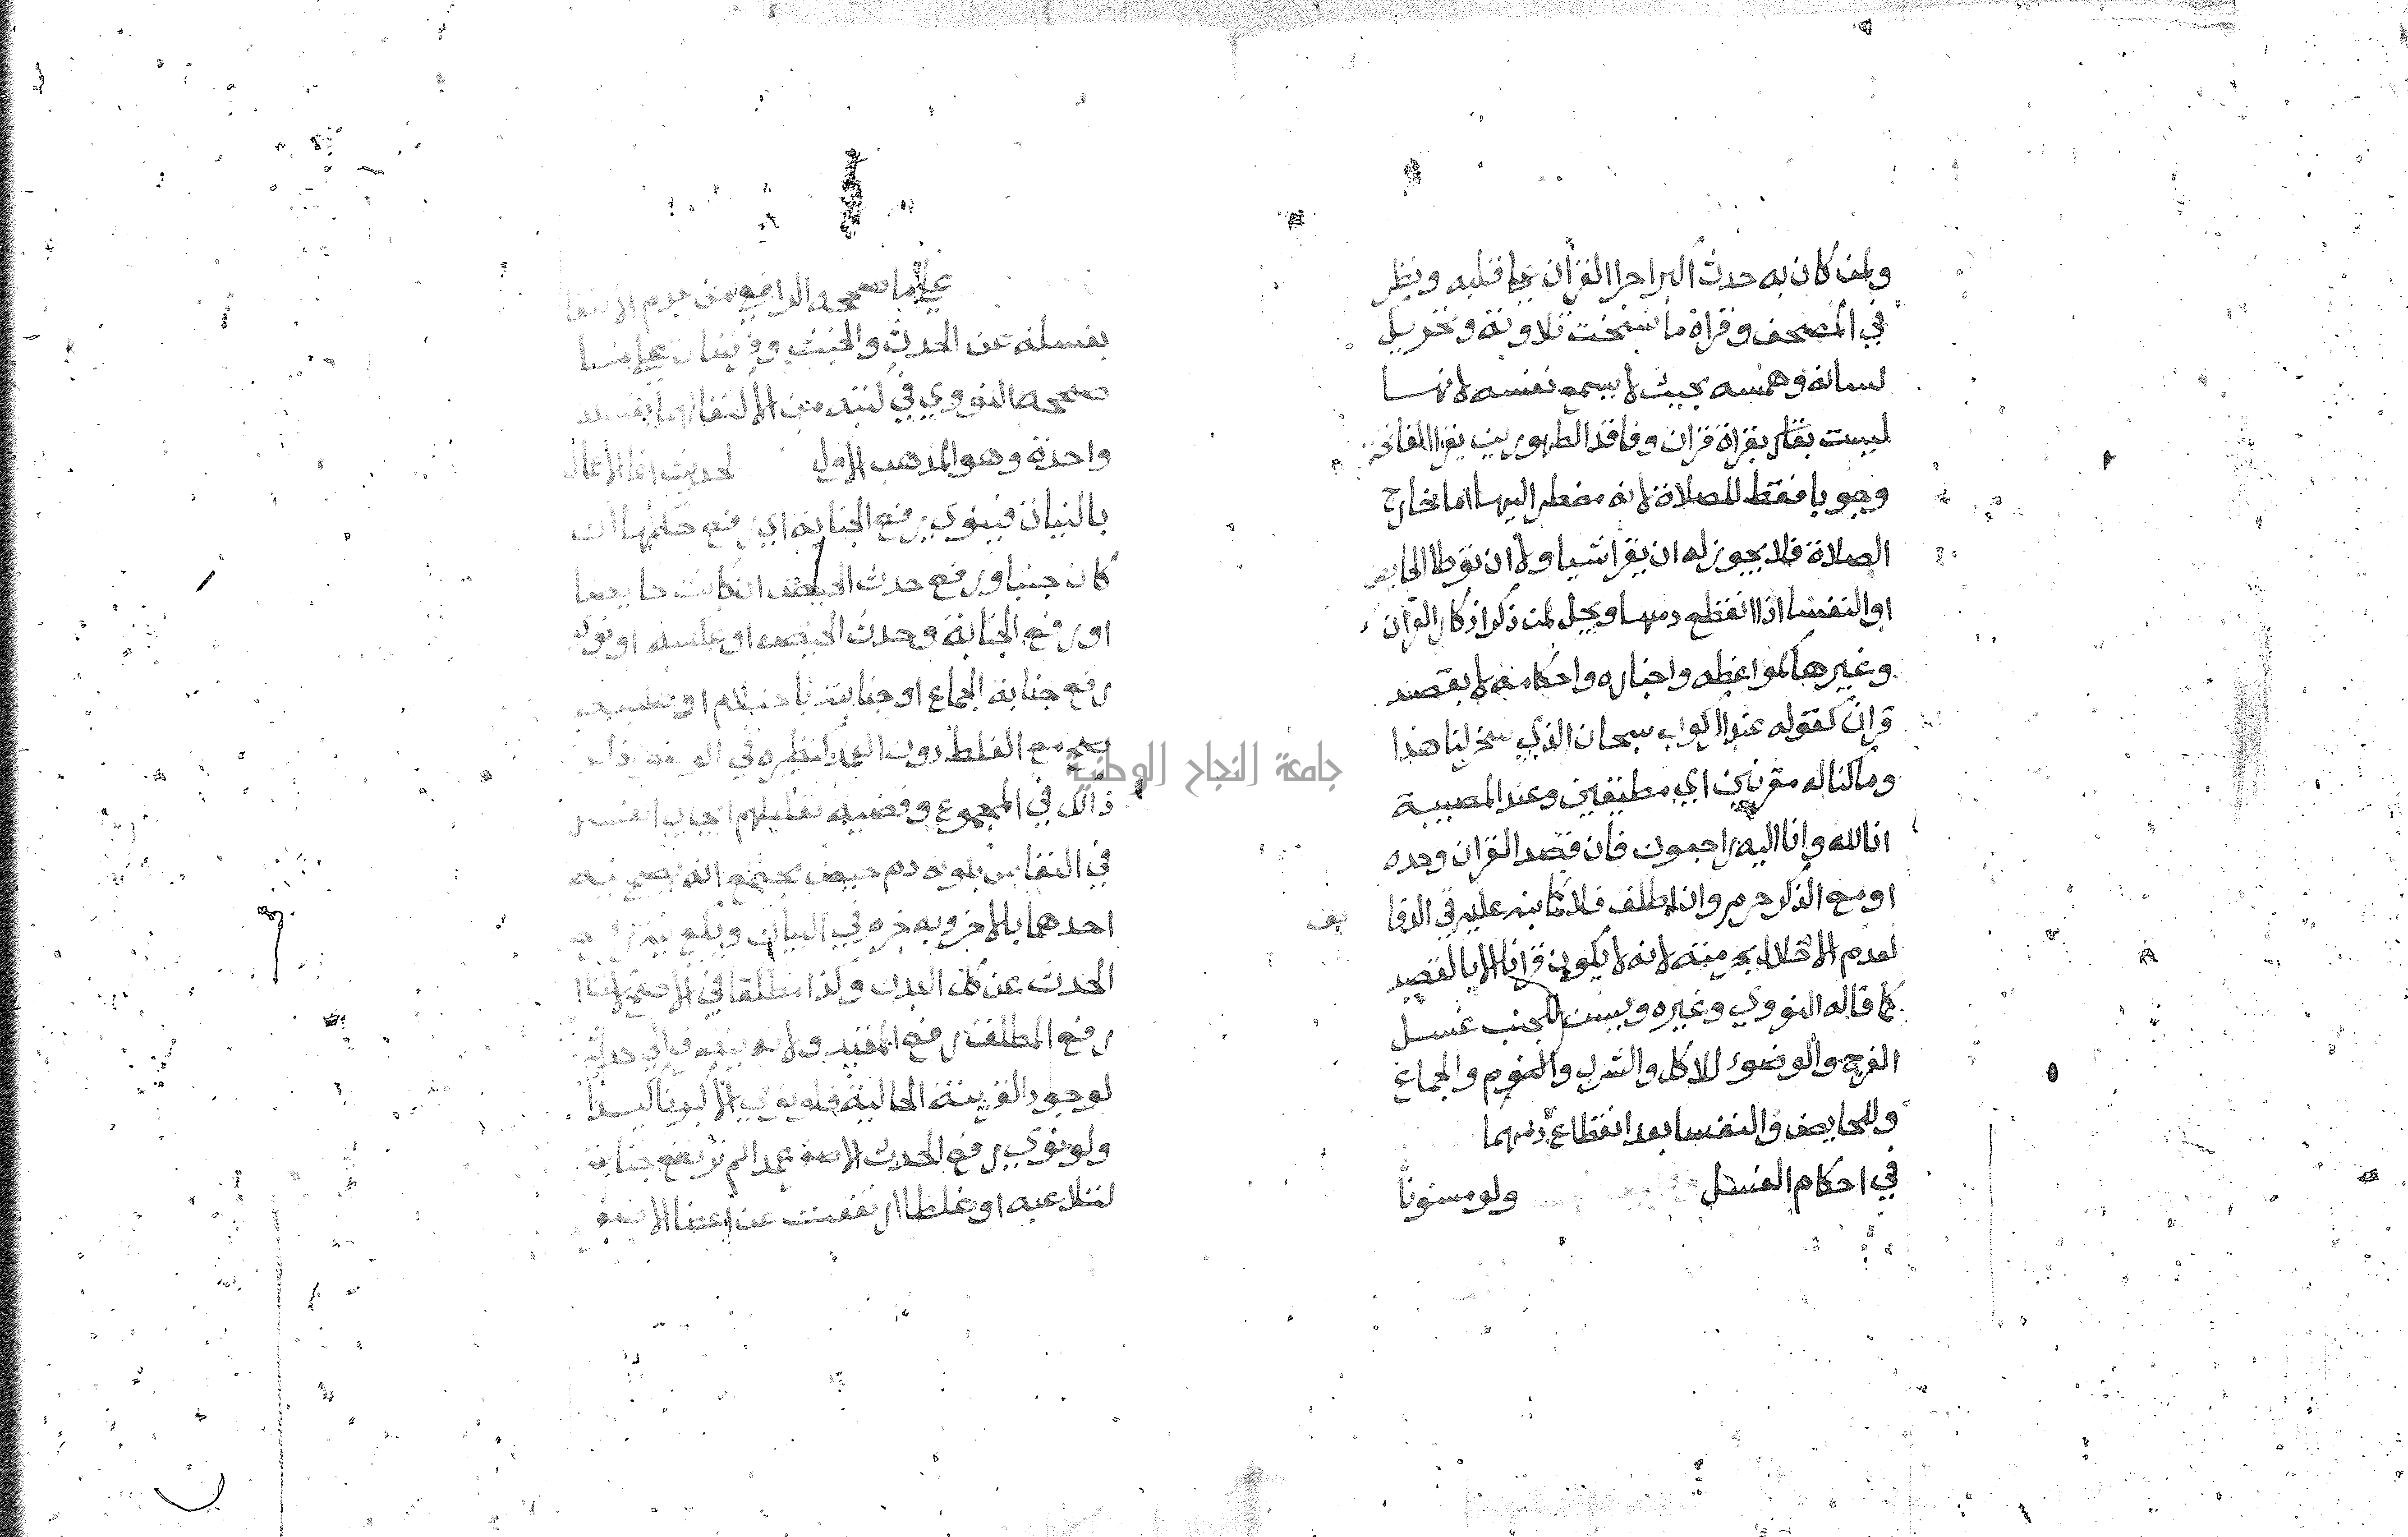 ولمن كان به حدث اكبر اجرا القران على قلبه ونظر
في المصحف وقراة ما نسخت تلاوته وتحريك
لسانه وهمسه بحيث لا يسمع نفسه لانها
ليست بقراة قران وفاقد الطهورين يقرا الفاتحة
وجوبا فقط للصلاة لانه مضطر اليها اما خارج
الصلاة فلا يجوز له ان يقرا شيا ولا ان توطا الحايض
او النفسا اذا انقطع دمها ويحل لمن ذكر اذكار القران
وغيرها كمواعظه واخباره واحكامه لا بقصد
قران كقوله عند الركوب سبحان الذي سخر لنا هذا
وما كنا له مقرنين اي مطيقين وعند المصيبة
انا لله وانا اليه راجعون فان قصد القران وحده
او مع الذكر حرم وان اطلق فلا كما نبه عليه في الدقا
يق
لعدم الاخلال بحرمته لانه لا يكون قرانا الا بالقصد
كما قاله النووي وغيره ويسن للجنب غسل
الفرج والوضوء للاكل والشرب والنوم والجماع
وللحايض والنفسا بعد انقطاع دمهما
في احكام الغسل ولو مسنونا
على ما صححه الرافعي من عدم الاكتفا
بغسله عن الحدث والخبث على ما
صححه النووي في كتبه من الاكتفا لهما بغسلة
واحدة وهو المذهب الاول لحديث انما الاعمال
بالنيات فينوي رفع الجنابة اي رفع حكمها ان
كان جنبا ورفع حدث الحيض ان كانت حايضا
او رفع الجنابة وحدث الحيض او عكسه او نوى
رفع جنابة الجماع او جنابته باحتلام او عكسه
صح مع الغلط دون العمد كنظيره في الوضوء ذكر
ذالك في المجموع وقضية تعليلهم ايجاب الغسل
في النفاس بكونه دم حيض مجتمع انه يصح نية
احدهما بالاخر وبه جزم في البيان ويكفي نية رفع
الحدث عن كل البدن وكذا مطلقا في الاصح
رفع المطلق رفع المقيد ولانه ينصرف الى حدثه
لوجود القرينة الحالية فلو نوى الاكبر كان تاكيدا
ولو نوى رفع الحدث الاصغر عمدا لم ترتفع جنابته
لتلاعبه او غلطا ارتفعت عن اعضا الاصغر
جامعة النجاح الوطنية